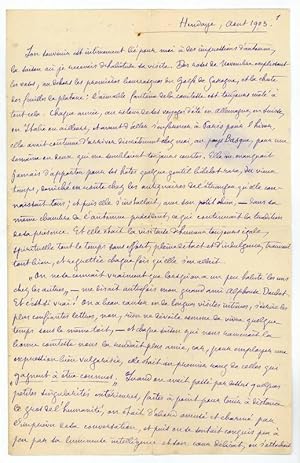 Hendaye, Août 1903.
Son souvenir est intimement lié pour moi à des impressions d'automne,
la saison où je recevais d'habitude sa visite. Des roses de Décembre emplissant
les vases, au dehors les premières bourrasques du Golfe de Gascogne, et la chute
des feuilles de platane: l'aimable fantôme de la comtesse est toujours mêlé à
tout cela. Chaque année, au retour de ses voyages d'été en Allemagne, en Suisse,
en Italie ou ailleurs, et avant d'aller s'enfermer à Paris pour l'hiver,
elle avait coutume d'arriver discrètement chez moi, au pays Basque, pour une
semaine ou deux, qui me semblaient toujours courtes. Elle ne manquait
jamais d'apporter pour ses hôtes quelque gentil bibelot rare, du vieux
temps, déniché en route chez les antiquaires de l'étranger qu'elle con-
naissait tous; et puis elle s'installait, avec son petit chien, dans sa
même chambre de l'automne précédent, ce qui continuait la tradition
de sa présence. Et elle était la visiteuse d'humeur toujours égale,
spirituelle tout le temps sans effort, pleine de tact et d'indulgence, trouvant
tout bien, et regrettée chaque fois qu'elle s'en allait.
"On ne se connaît vraiment que lorsqu'on a un peu habité les uns
chez les autres", me disait autrefois mon grand ami Alphonse Daudet.
Et c'est si vrai! On a beau causer en de longues visites intimes, s'écrire les
plus confiantes lettres, non, rien ne dévoile comme de vivre quelque
temps sous le même toit, et chaque saison qui nous ramenait la
bonne comtesse nous la rendait plus amie, car, pour employer une
expression bien vulgarisée, elle était au premier rang de celles qui
"gagnent à être connues". Quand on avait passé par dessus quelques
petites singularités extérieures, faites à point pour tenir à distance
le gros de l'humanité, on était d'abord amusé et charmé par
l'imprévu de sa conversation, et puis on se sentait conquis peu à
peu par sa lumineuse intelligence et son cœur délicat, on s'attachait